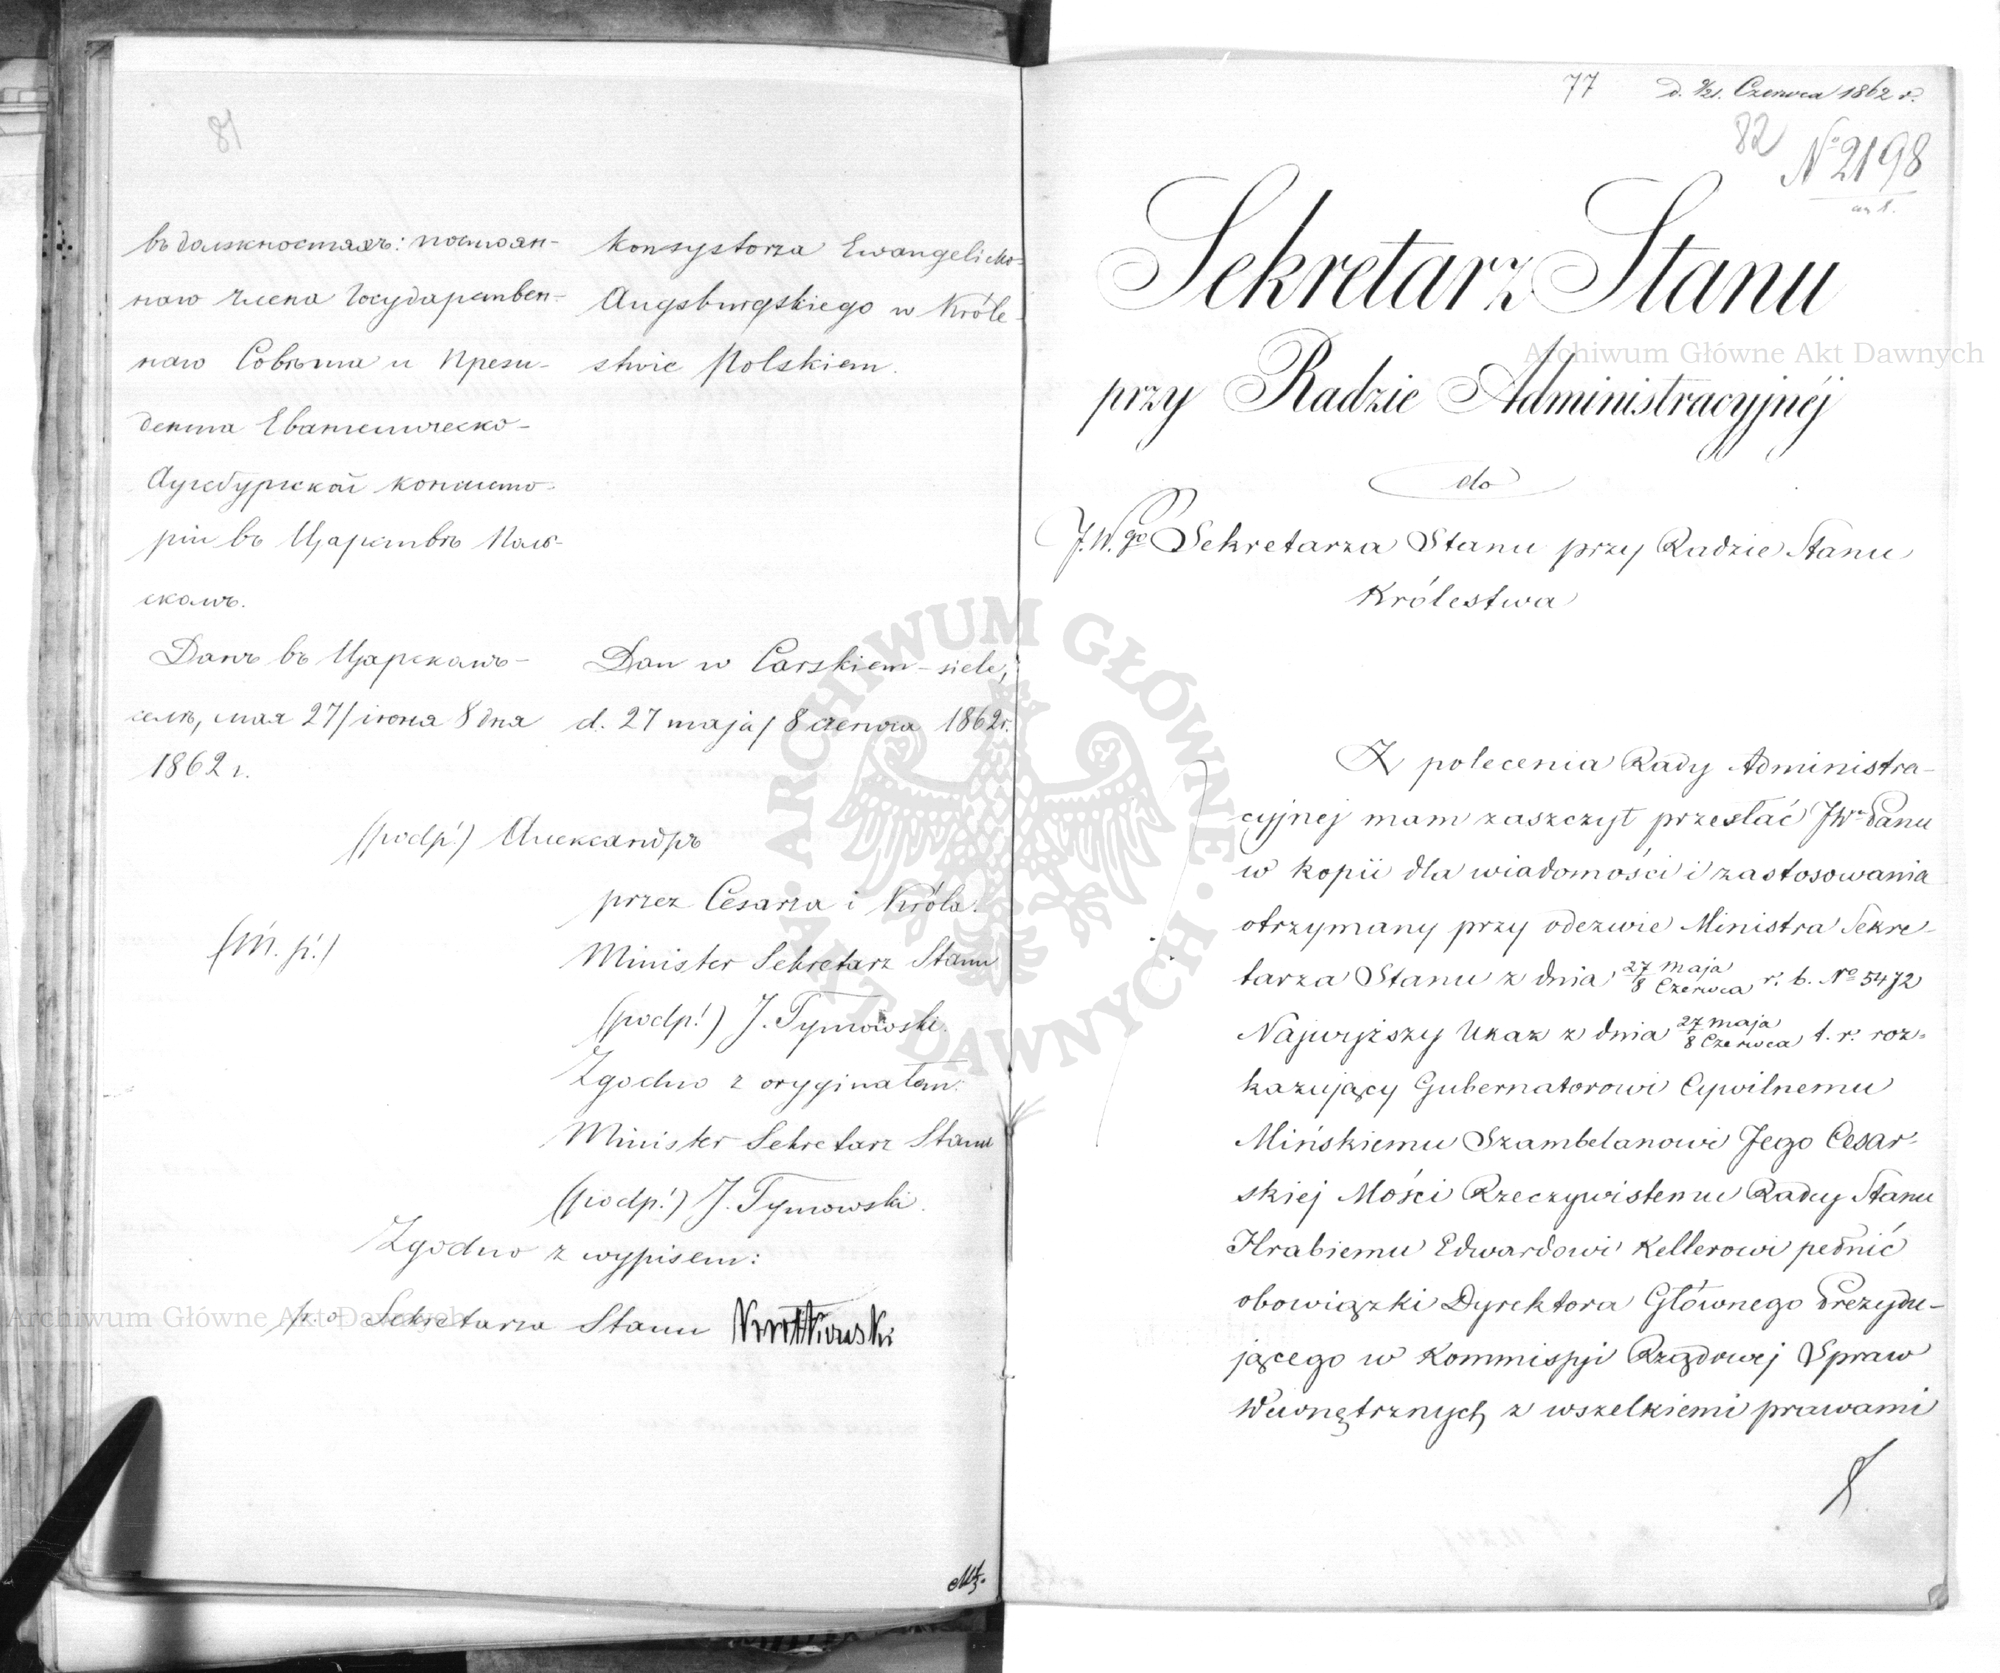 81
въ должностяхъ: постоян-
наго члена Государствен-
наго Совѣта и Прези-
дента Евангелическо-
Аугсбургской консисто-
ріи въ Царствѣ Поль-
скомъ.
Данъ въ Царскомъ-
селѣ, мая 27/іюня 8 дня
1862 г.
konsystorza Ewangelicko-
Augsburgskiego w Króle-
stwie Polskiem.
Dan w Carskiem-siele,
d. 27 maja/8 czerwca 1862 r.
(podp.) Александръ
przez Cesarza i Króla.
(M. p.)
Minister Sekretarz Stanu
(podp.) J. Tymowski.
Zgodno z oryginałem:
Minister Sekretarz Stanu
(podp.) J. Tymowski.
Zgodno z wypisem:
p.o. Sekretarza Stanu
77 d. 9/21. Czerwca 1862 r.
82
No 2198
Sekretarz Stanu
przy Radzie Administracyjnéj
do
J.W.go Sekretarza Stanu przy Radzie Stanu
Królestwa
Z polecenia Rady Administra-
cyjnej mam zaszczyt przesłać JW. Panu
w kopii dla wiadomości i zastosowania
otrzymany przy odezwie Ministra Sekre-
tarza Stanu z dnia 27 Maja/8 Czerwca r. b. No 5472
Najwyższy Ukaz z dnia 27 Maja/8 Czerwca t. r. roz-
kazujący Gubernatorowi Cywilnemu
Mińskiemu Szambelanowi Jego Cesar-
skiej Mości Rzeczywistemu Radcy Stanu
Hrabiemu Edwardowi Kellerowi pełnić
obowiązki Dyrektora Głównego Prezydu-
jącego w Kommissyi Rządowej Spraw
Wewnętrznych z wszelkiemi prawami
Archiwum Główne Akt Dawnych
Archiwum Główne Akt Dawnych
ARCHIWUM GŁÓWNE AKT DAWNYCH